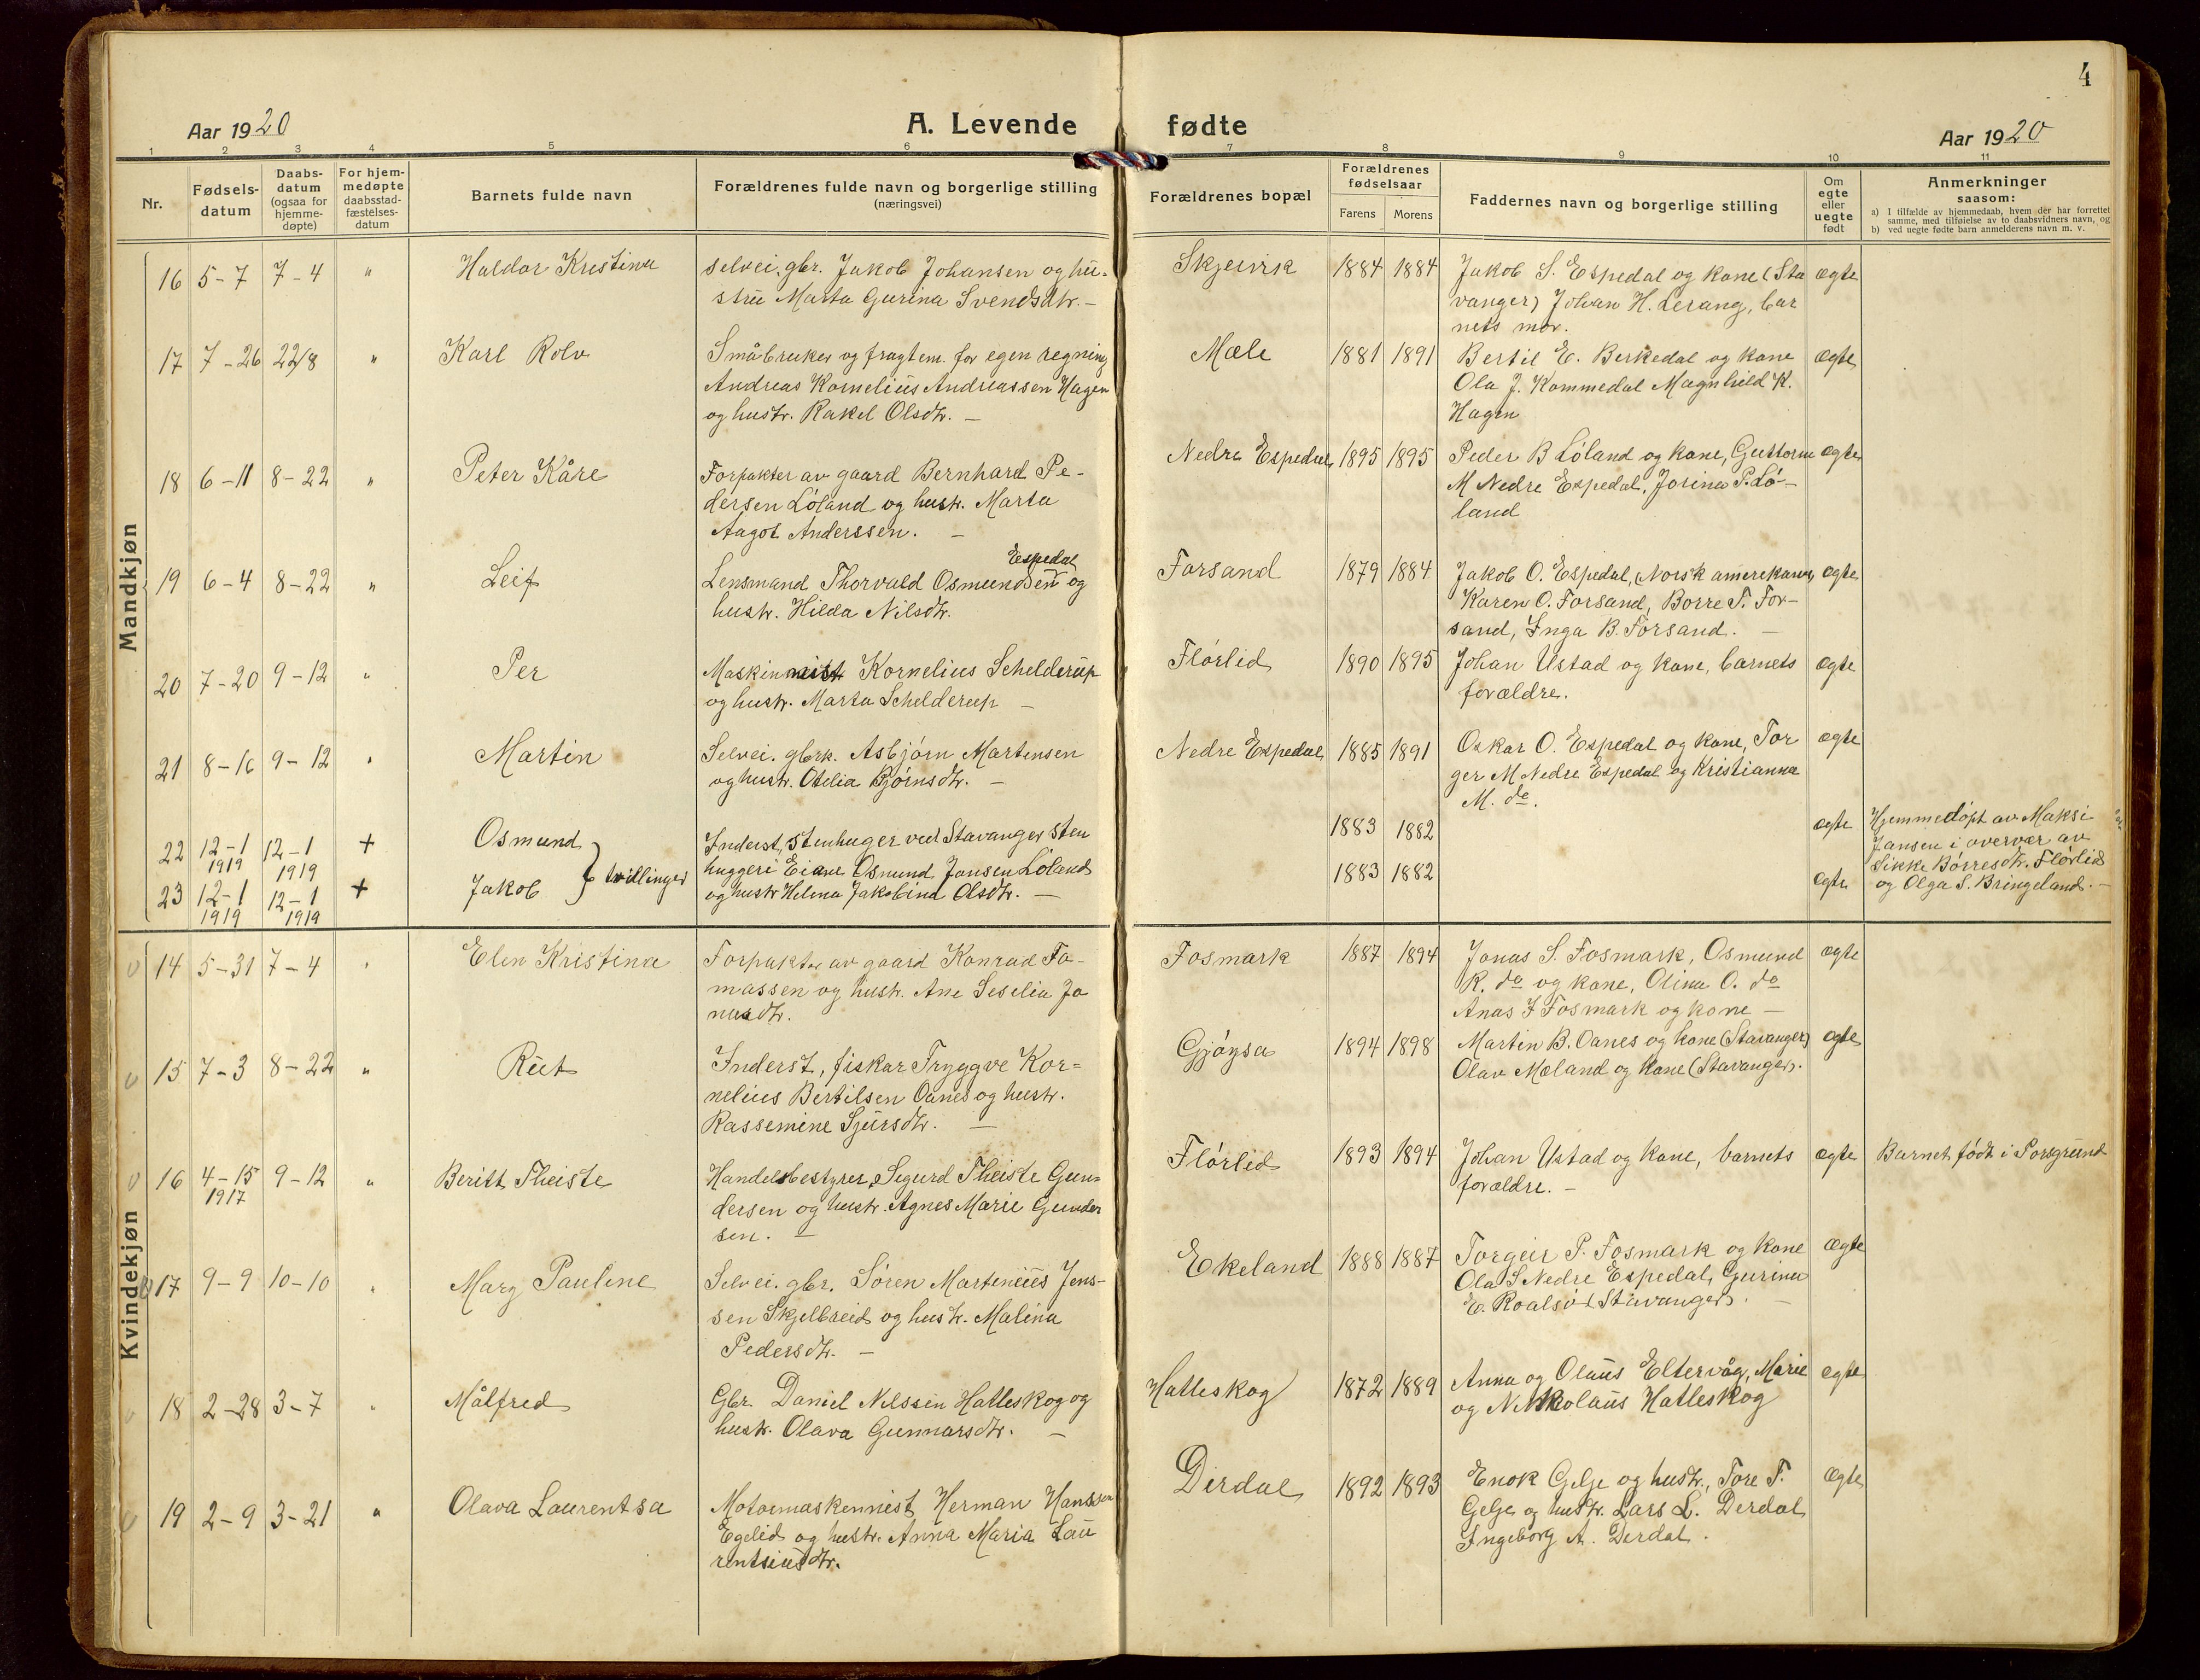 4
Aar 1920
A. Levende fødte
Aar 1920
1 2 3 4 5 6 7 8 9 10 11
Nr.
Fødsels-
datum
Daabs-
datum
(ogsaa for
hjemme-
døpte)
For hjem-
medøpte
daabsstad-
fæstelses-
datum
Barnets fulde navn
Forældrenes fulde navn og borgerlige stilling
(næringsvei)
Forældrenes bopæl
Forældrenes
fødselsaar
Farens Morens
Faddernes navn og borgerlige stilling
Om
egte
eller
uegte
født
Anmerkninger
saasom:
a) I tilfælde av hjemmedaab, hvem der har forrettet
samme, med tilføielse av to daabsvidners navn, og
b) ved uegte fødte barn anmelderens navn m. v.
Mandkjøn
16 5-7 7-4 " Haldor Kristian Selvei. gbr. Jakob Johansen og hu-
stru Marta Gurina Svendsdtr. -
Skjeivik 1884 1884 Jakob S. Espedal og kone (Sta
vanger) Johan H. Lerang, bar
nets mor.
ægte
17 7-26 22/8 " Karl Rolv Småbruker og fragtem. for egen regning
Andreas Kornelius Andreassen Hagen
og hustr. Rakel Olsdtr. -
Mæle 1881 1891 Bertil E. Berkedal og kone
Ola J. Kommedal Magnhild K.
Hagen
ægte
18 6-11 8-22 " Peter Kåre Forpakter av gaard Bernhard Pe-
dersen Løland og hustr. Marta
Aagot Anderssen. -
Nedre Espedal 1895 1895 Peder B Løland og kone, Guttorm
M Nedre Espedal, Jorina P. Lø-
land
ægte
19 6-4 8-22 " Leif Espedal
Lensmand Thorvald Osmundsen og
hustr. Hilda Nilsdtr.
Forsand 1879 1884 Jakob O. Espedal, (Norsk amerekaner)
Karen O. Forsand, Borre T. For-
sand, Inga B. Forsand. -
ægte
20 7-20 9-12 " Per Maskinmist Kornelius Schelderup
og hustr. Marta Schelderup -
Flørlid 1890 1895 Johan Ustad og kone, barnets
forældre.
ægte
21 8-16 9-12 " Martin Selvei. gbrk. Asbjørn Martensen
og hustr. Otelia Bjørnsdtr. -
Nedre Espedal 1885 1891 Oskar O. Espedal og kone, Tor
ger M Nedre Espedal og Kristianna
M. do.
ægte
22 12-1 1919 12-1 1919 + Osmund
23 12-1 1919 12-1 1919 + Jakob
} tvillinger
Inderst, stenhuger ved Stavanger sten
huggeri Eiane Osmund Jansen Løland
og hustr Helena Jakobina Olsdtr. -
1883 1882 ægte
1883 1882 ægte
Hjemmedøpt av Maksi
Jansen i overvær av
Sikke Børresdtr. Flørlid
og Olga S. Bringeland. -
Kvindekjøn
v 14 5-31 7-4 " Elen Kristina Forpakter av gaard Konrad To-
massen og hustr. Ane Seselia Jo
nasdtr.
Fosmark 1887 1894 Jonas S. Fosmark, Osmund
R. do og kone, Olina O. do
Anas J Fosmark og kone -
ægte
v 15 7-3 8-22 " Rut Inderst, fiskar Tryggve Kor-
nelius Bertilsen Oanes og hustr.
Rassemine Sjursdtr. -
Gjøysa 1894 1898 Martin B. Oanes og kone (Stavanger)
Olav Mæland og kone (Stavanger).
ægte
v 16 4-15 1917 9-12 " Beritt Theiste Handelsbestyrer, Segurd Theiste Gun-
dersen og hustr. Agnes Marie Gunder
sen. -
Flørlid 1893 1894 Johan Ustad og kone, barnets
forældre. -
ægte Barnet født i Porsgrund
v 17 9-9 10-10 " Marg Pauline Selvei. gbr. Søren Martenius Jens-
sen Skjelbreid og hustr. Malena
Pedersdtr. -
Ekeland 1888 1887 Torgeir P. Fosmark og kone
Ola S Nedre Espedal, Gurina
E. Roalsø (Stavanger). -
ægte
v 18 2-28 3-7 " Målfred Gbr. Daniel Nelssen Hatleskog og
hustr. Olava Gunnarsdtr. -
Hatleskog 1872 1889 Anna og Olaus Eltervåg, Marie
og Nikolaus Hatleskog
ægte
v 19 2-9 3-21 " Olava Laurentsa Motormaskennist Herman Hanssen
Egelid og hustr. Anna Maria Lau
rentsiusdtr.
Derdal 1892 1893 Enok Gelje og hustr., Tore T.
Gelje og hustr. Lars L. Derdal
Ingeborg A. Derdal.
ægte